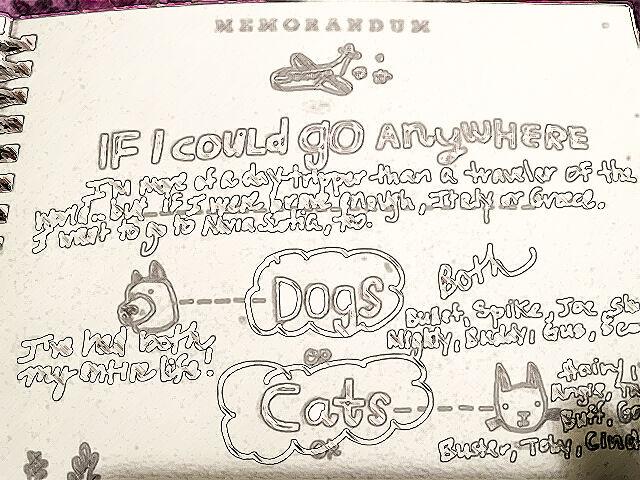 MEMORANDUM
IF I COULD go ANYWHERE
I'm more of a day tripper than a traveler of the
world.. but if I were brave enough, Italy or Greece.
I want to go to Nova Scotia, too.
Both
Dogs
Spike, Joe,
Buddy, Gus,
I've had both,
my entire life.
OR
Cats
Angie,
Buff,
Buster, Toby, Cind
OR